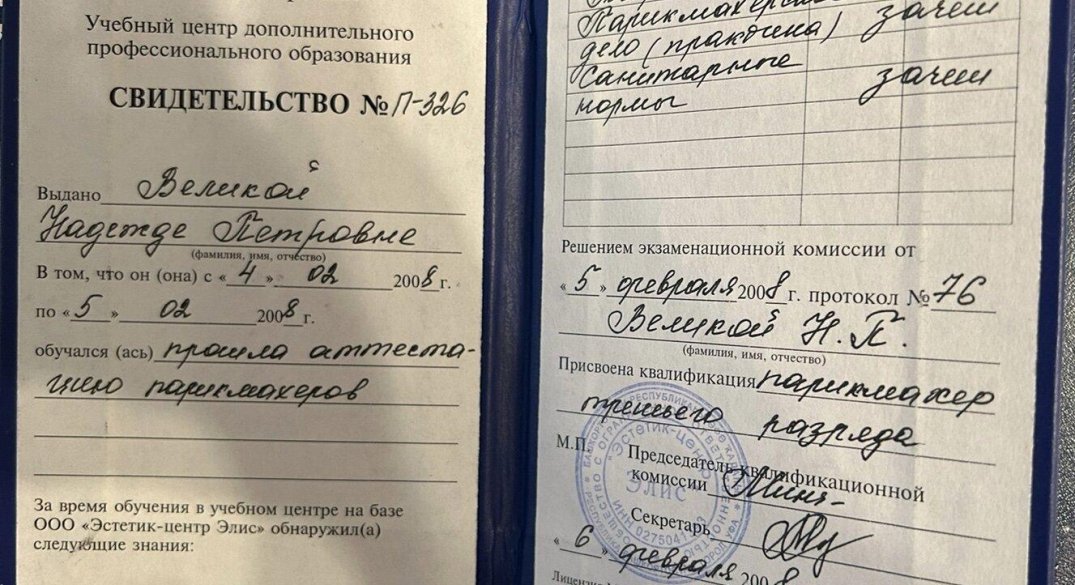 Учебный центр дополнительного
профессионального образования
СВИДЕТЕЛЬСТВО № П-326
Выдано Великой
Надежде Петровне
(фамилия, имя, отчество)
В том, что он (она) с «4» 02 2008 г.
по «5» 02 2008 г.
обучался (ась) прошла аттеста-
цию парикмахеров
За время обучения в учебном центре на базе
ООО «Эстетик-центр Элис» обнаружил(а)
следующие знания:
дело (практика) зачет
Санитарные зачет
нормы
Решением экзаменационной комиссии от
«5» февраля 2008 г. протокол № 76
Великой Н. П.
(фамилия, имя, отчество)
Присвоена квалификация парикмахер
третьего разряда
М.П. Председатель квалификационной
комиссии
Секретарь
«6» февраля 2008
"Эстетик-центр
Элис"